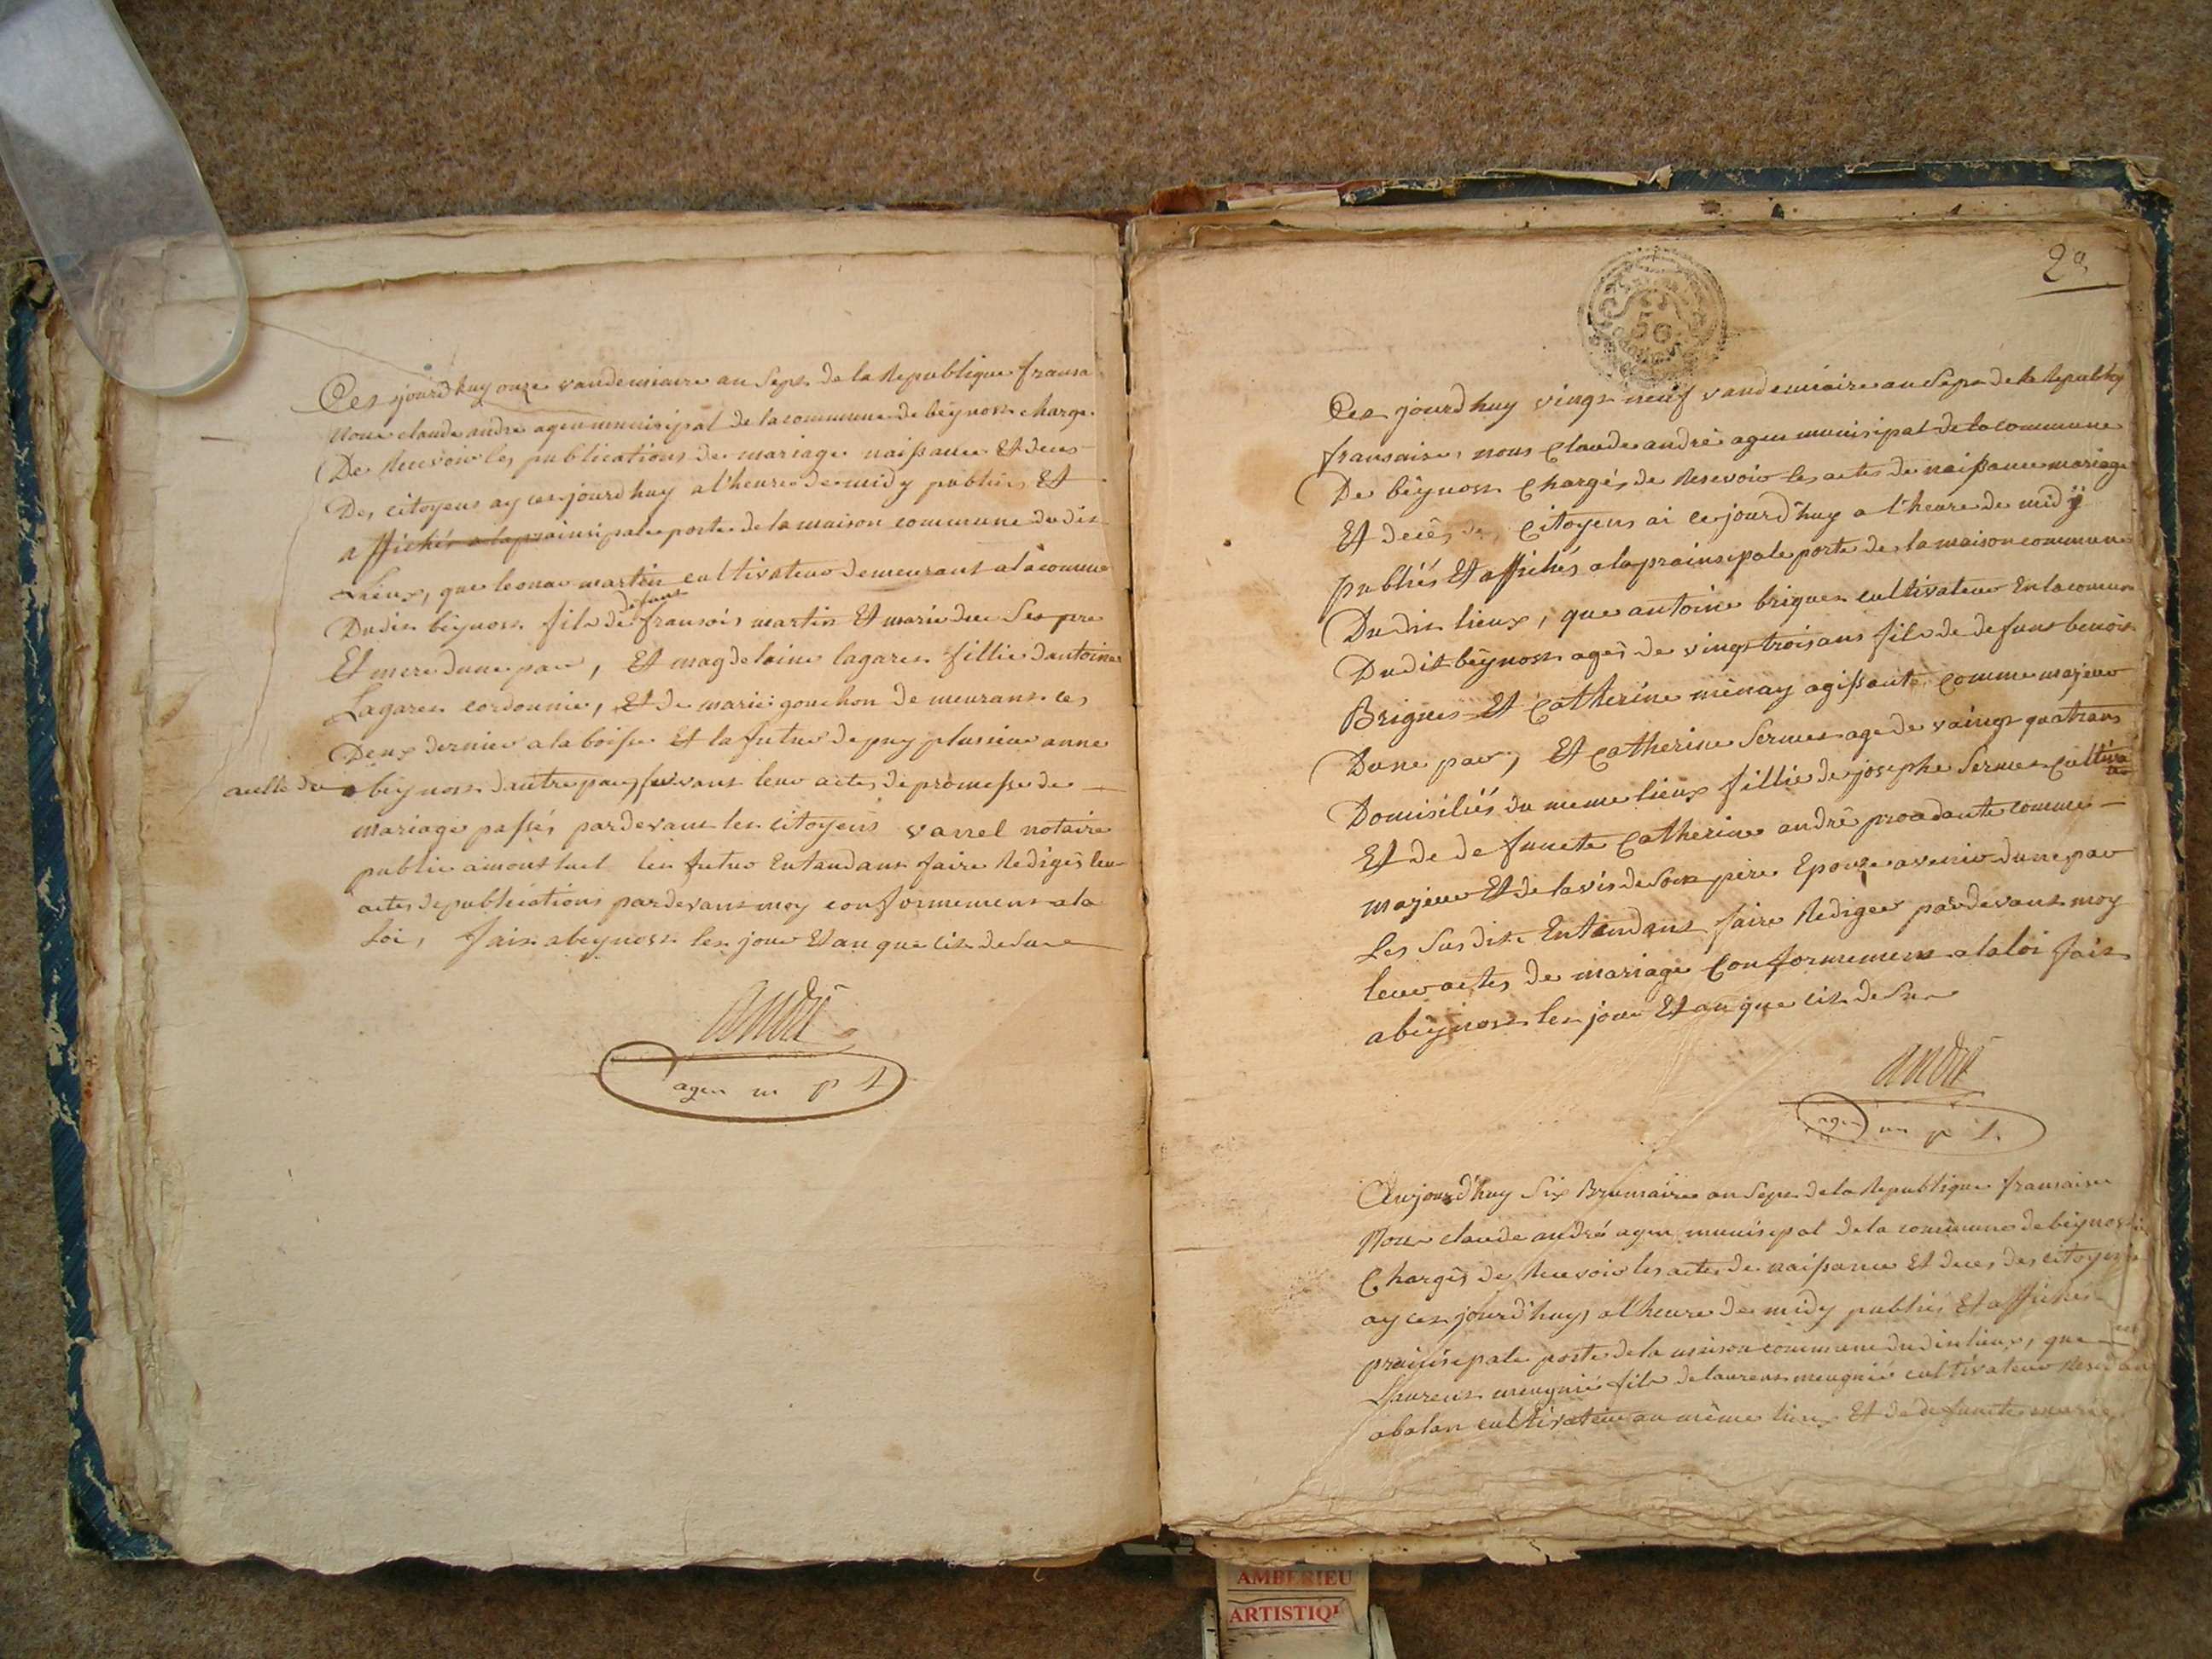 Cet jourdhuy onze vandemiaire an Sept de la Republique fransa
Nous claude andré agen munisipal de la commune de beynost charge
De Recevoir les publications de mariage naissance Et deces
Des citoyens ay cet jourdhuy a l'heure de midy publies Et
affichés a la prainsipale porte de la maison commune du dit
Lieux, que leonar martin cultivateur demeurant a la comune
Dudit beynost fils de defunt fransois martin Et marie due Ses pere
Et mere dune par, Et magdelaine lagaret fillie dantoine
Lagaret cordounie, Et de marie gouchon demeurant ces
Deux dernier a la boisse Et la futur depuy plusieur anne
aulle du beynost dautre par, suivant leur actes de promesse de
mariage passés pardevant les citoyens varrel notaire
public a montluel les futur Entandant faire Redigés leur
actes de publications pardevant moy conformement a la
Loi, fait a beynost les jour Et an que cit desure
andré
agen m p l
2e
50
Cet jourdhuy vingt neuf vandemiaire an Sept de la Republiq
fransaise, nous Claude andré agen munisipal de la commune
De beynost Chargés de Resevoir les actes de naissance mariage
Et decês des Citoyens ai ce jourd'huy a l'heure de midÿ
publiés Et affichés a la prainsipale porte de la maison commune
Du dit lieux, que antoine brigues cultivateur En la comune
Dudit beynost agés de vingt trois ans fils de defunt benoit
Brigues Et Catherine menay agissante Comme majeur
Dune par, Et Catherine Sermet age de vaingt quatrans
Domisiliés du meme lieux fillie de josephe Sermet Cultiva
teur
Et de defuncte Catherine andré prosedante comme
majeur Et de lavis de Son pere Epouze avenir dune par
Les Susdit Entandant faire Rediger pardevant moy
leur actes de mariage Conformement a la loi fait
a beynost les jour Et an que cit desur
andré
agen m p l
Aujourd'huy Six Brumaire an Sept de la Republique fransaise
Nous claude andré agen munisipal de la commune de beynost
Chargés de Recevoir les actes de naissance Et deces des citoyens
ay cet jourd'huy a l'heure de midy publies Et affiches
prainsipale porte de la maison commune du dit lieux, que
Laurent meugnié fils de laurent meugnié cultivateur
a balan cultivateur au même lieux Et de defuncte marie
AMBERIEU
ARTISTIQ